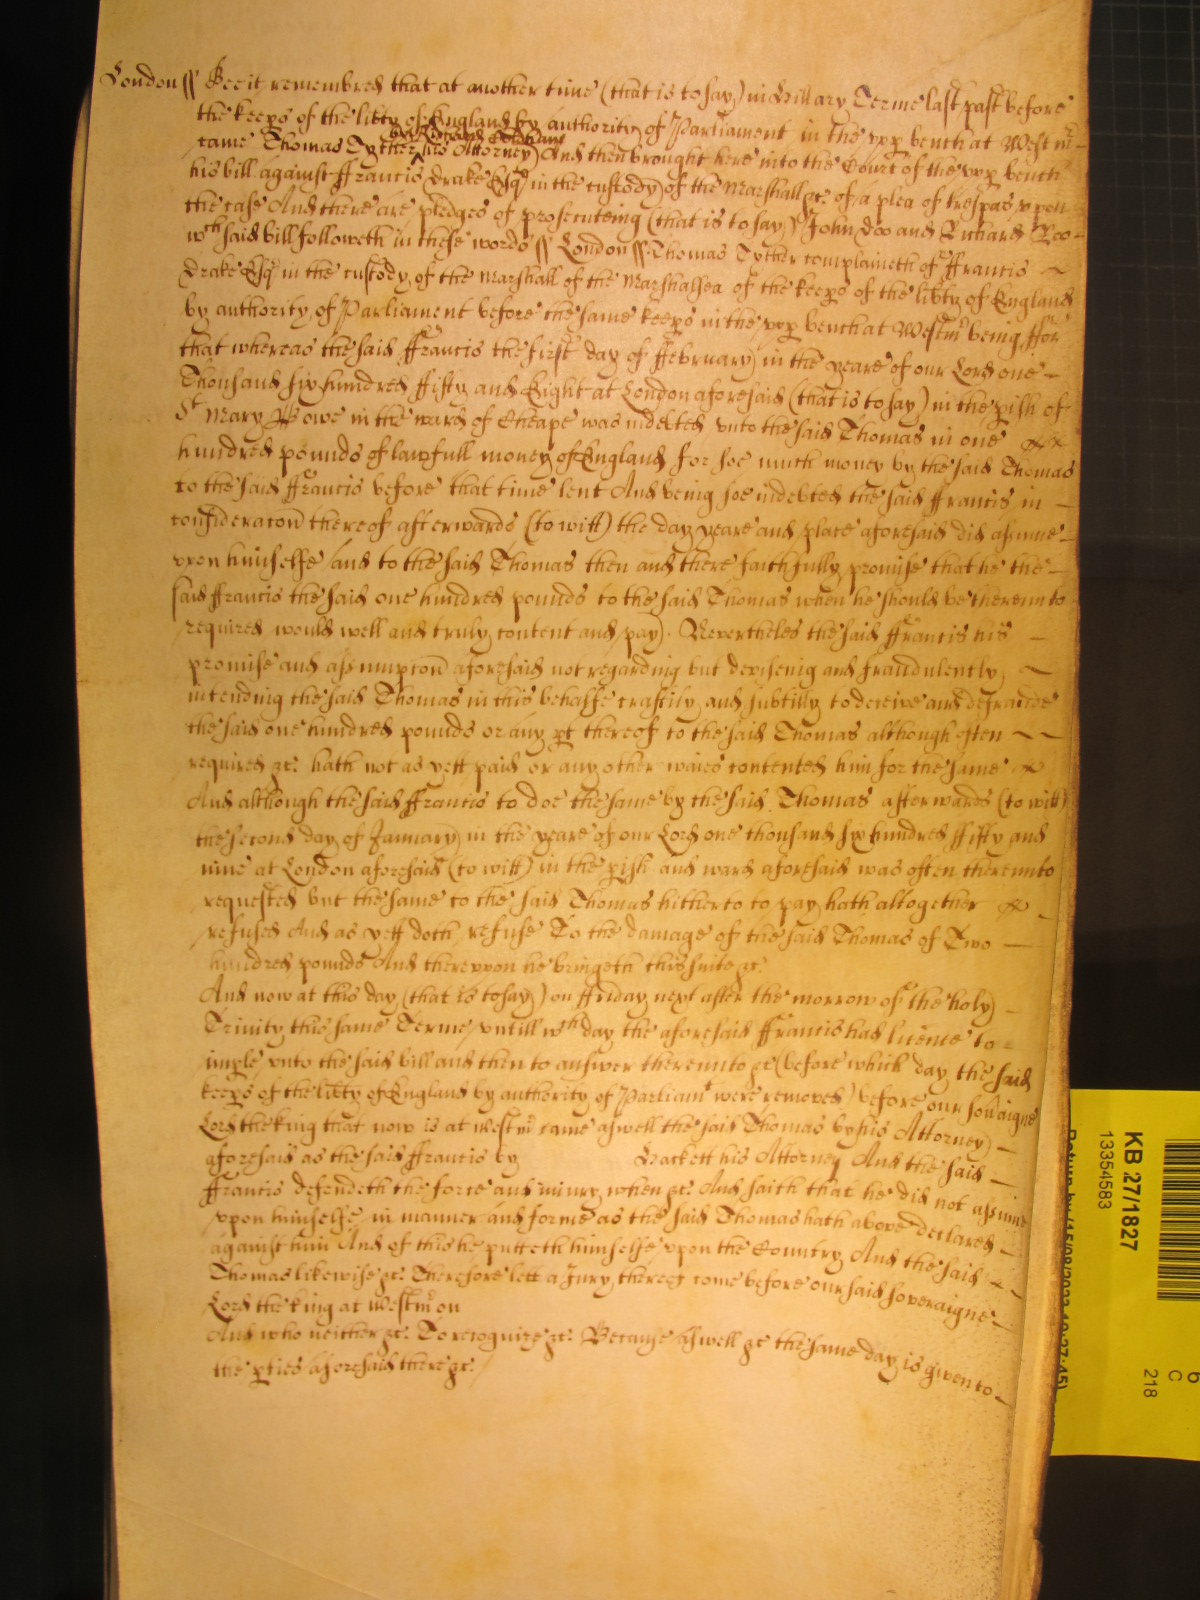 London ss Bee it remembred that at another time (that is to say) in Hillary Terme last past before
the keeps of the libty of England by authority of Parliament in the vpp bench at Westmr
by Richard
came Thomas Tyther his Attorney And then brought here into the Court of the vpp bench
his bill against ffrancis Drake Esqr in the custody of the Marshall &c of a plea of trespas vpon
the case And there are pledges of prosecuteing (that is to say) John Doo and Richard Roo
wch said bill followeth in these words ss London ss Thomas Tyther complaineth of ffrancis
Drake Esqr in the custody of the Marshall of the Marshalsea of the keeps of the libty of England
by authority of Parliament before the same keeps in the vpp bench at Westmr being ffor
that whereas the said ffrancis the first day of ffebruary in the yeare of our Lord one
Thousand six hundred ffifty and Eight at London aforesaid (that is to say) in the pish of
St Mary Bowe in the ward of Cheape was indebted vnto the said Thomas in one
hundred pounds of lawfull money of England for soe much money by the said Thomas
to the said ffrancis before that time lent And being soe indebted the said ffrancis in
consideracon thereof afterwards (to witt) the day yeare and place aforesaid did assume
vpon himselfe and to the said Thomas then and there faithfully promise that he the
said ffrancis the said one hundred pounds to the said Thomas when he should be therevnto
required would well and truly content and pay. Nevertheles the said ffrancis his
promise and assumpcon aforesaid not regarding but deviseing and fraudulently
intending the said Thomas in this behalfe craftily and subtilly to deceive and defraude
the said one hundred pounds or any pt thereof to the said Thomas although often
required &c. hath not as yett paid or any other waies contented him for the same
And although the said ffrancis to doe the same by the said Thomas afterwards (to witt)
the second day of January in the yeare of our Lord one thousand six hundred ffifty and
nine at London aforesaid (to witt) in the pish and ward aforesaid was often therevnto
requested but the same to the said Thomas hitherto to pay hath altogether
refused And as yett doth refuse To the damage of the said Thomas of Two
hundred pounds And therevpon he bringeth this suite &c.
And now at this day (that is to say) on ffriday next after the morrow of the holy
Trinity this same Terme vntill wch day the aforesaid ffrancis had licence to
imple vnto the said bill and then to answer therevnto &c (before which day the said
keeps of the libty of England by authority of Parliamt were removed) before our sovaigne
Lord the king that now is at Westmr came aswell the said Thomas by his Attorney
aforesaid as the said ffrancis by Brackett his Attorney And the said
ffrancis defendeth the force and iniury when &c. And saith that he did not assume
vpon himselfe in manner and forme as the said Thomas hath above declared
against him And of this he putteth himselfe vpon the Country And the said
Thomas likewise &c. Therefore lett a Jury therevpon come before our said soveraigne
Lord the king at Westmr on
And who neither &c. To recognize &c. Because aswell &c the same day is given to
the pties aforesaid there &c.
KB 27/1827
13354583
C
218